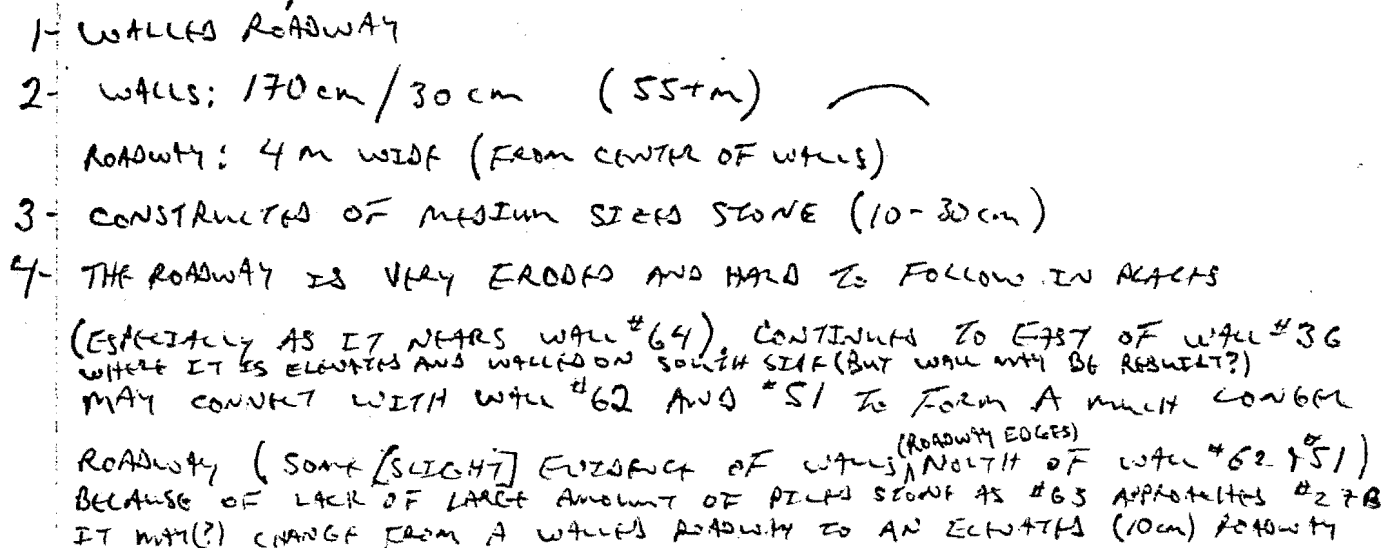 1- WALLED ROADWAY
2- WALLS: 170 cm/30 cm (55+m)
ROADWAY: 4 M WIDE (FROM CENTER OF WALLS)
3- CONSTRUCTED OF MEDIUM SIZED STONE (10-30 cm)
4- THE ROADWAY IS VERY ERODED AND HARD TO FOLLOW IN PLACES
(ESPECIALLY AS IT NEARS WALL #64). CONTINUES TO EAST OF WALL #36
WHERE IT IS ELEVATED AND WALLED ON SOUTH SIDE (BUT WALL MAY BE REBUILT?)
MAY CONNECT WITH WALL #62 AND #51 TO FORM A MUCH LONGER
ROADWAY (SOME [SLIGHT] EVIDENCE OF WALLS (ROADWAY EDGES) NORTH OF WALL #62 & #51)
BECAUSE OF LACK OF LARGE AMOUNT OF PILED STONE AS #63 APPROACHES #27B
IT MAY(?) CHANGE FROM A WALLED ROADWAY TO AN ELEVATED (10cm) ROADWAY